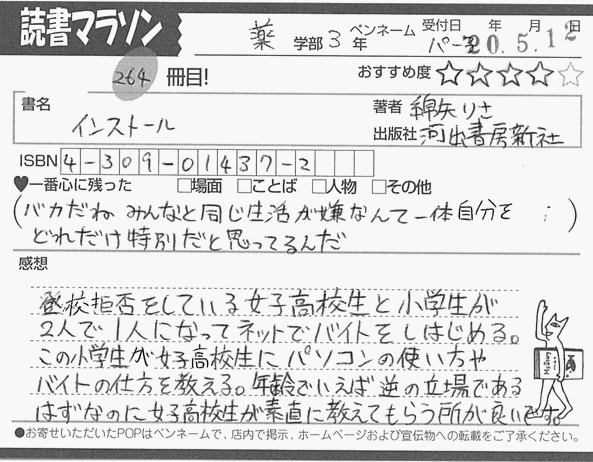 読書マラソン
薬 学部 3 年 ペンネーム パー子 受付日 年 月 日
20.5.12
264 冊目!
おすすめ度 ☆☆☆☆☆
書名 インストール
著者 綿矢りさ
出版社 河出書房新社
ISBN 4-309-01437-2
♥一番心に残った □場面 □ことば □人物 □その他
(バカだね みんなと同じ生活が嫌なんて一体自分を
どれだけ特別だと思ってるんだ)
感想
登校拒否をしている女子高校生と小学生が
2人で1人になってネットでバイトをしはじめる。
この小学生が女子高校生にパソコンの使い方や
バイトの仕方を教える。年齢でいえば逆の立場である
はずなのに女子高校生が素直に教えてもらう所が良いです。
●お寄せいただいたPOPはペンネームで、店内で掲示、ホームページおよび宣伝物への転載をご了承ください。